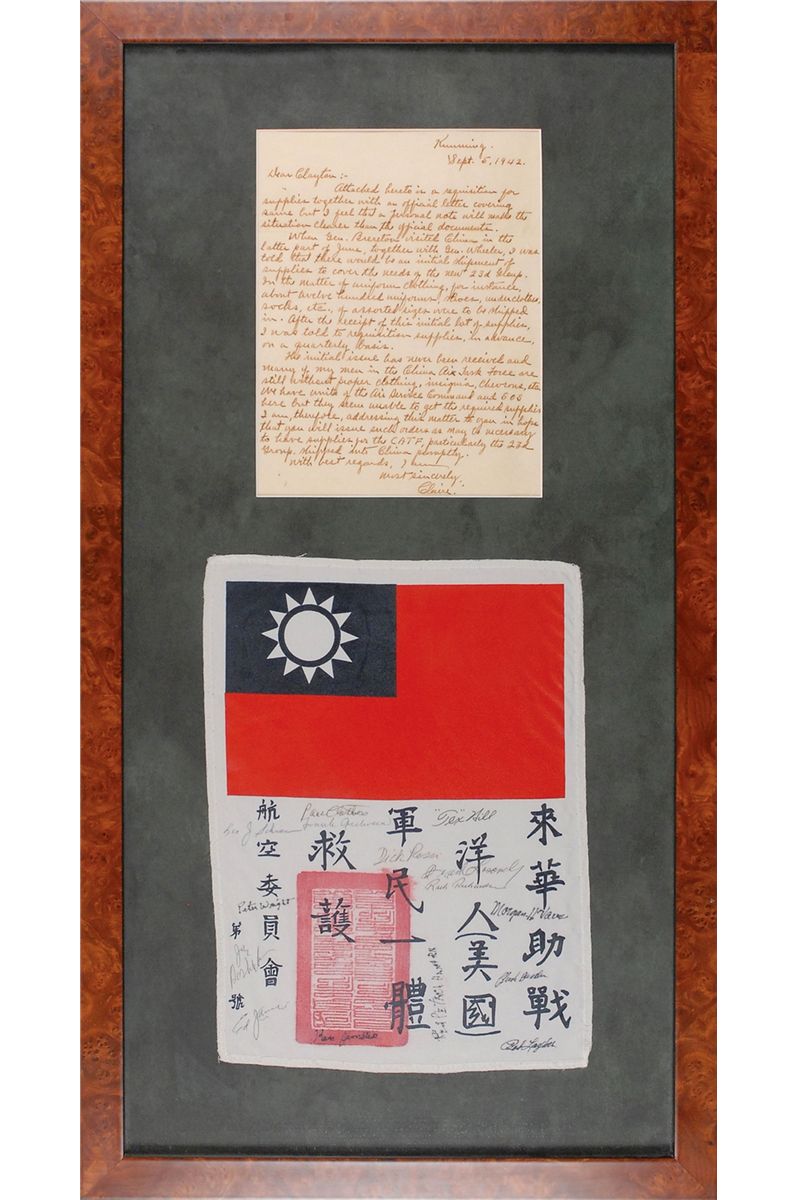 Kunming.
Sept. 5, 1942.
Dear Clayton:-
Attached hereto is a requisition for
supplies together with an official letter covering
same but I feel that a personal note will make the
situation clearer than the official documents.
When Gen. Brereton visited China in the
latter part of June, together with Gen. Wheeler, I was
told that there would be an initial shipment of
supplies to cover the needs of the new 23d Group.
In the matter of uniform clothing, for instance,
about twelve hundred uniforms, shoes, underclothes,
socks, etc., of assorted sizes were to be shipped
in. After the receipt of this initial lot of supplies,
I was told to requisition supplies, in advance,
on a quarterly basis.
This initial issue has never been received and
many of my men in the China Air Task Force are
still without proper clothing, insignia, chevrons, etc.
We have units of the Air Service Command and SOS
here but they seem unable to get the required supplies.
I am, therefore, addressing this matter to you in hope
that you will issue such orders as may be necessary
to have supplies for the CATF, particularly the 23d
Group, shipped into China promptly.
With best regards, I am
Most sincerely,
Claire.
來華助戰
洋人(美國)
軍民一體
救護
航空委員會
第 號
"Tex" Hill
Dick Rossi
Peter Wright
Ed Janski